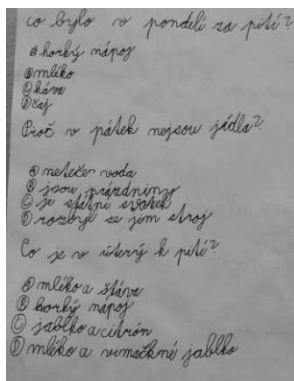 co bylo v pondělí za pití?
Ⓐ horký nápoj
Ⓑ mléko
Ⓒ káva
Ⓓ čaj
Proč v pátek nejsou jídla?
Ⓐ neteče voda
Ⓑ jsou prázdniny
Ⓒ je státní svátek
Ⓓ rozbyl se jim stroj
Co je v úterý k pití?
Ⓐ mléko a šťáva
Ⓑ horký nápoj
Ⓒ jablko a citrón
Ⓓ mléko a vimačkné jablko